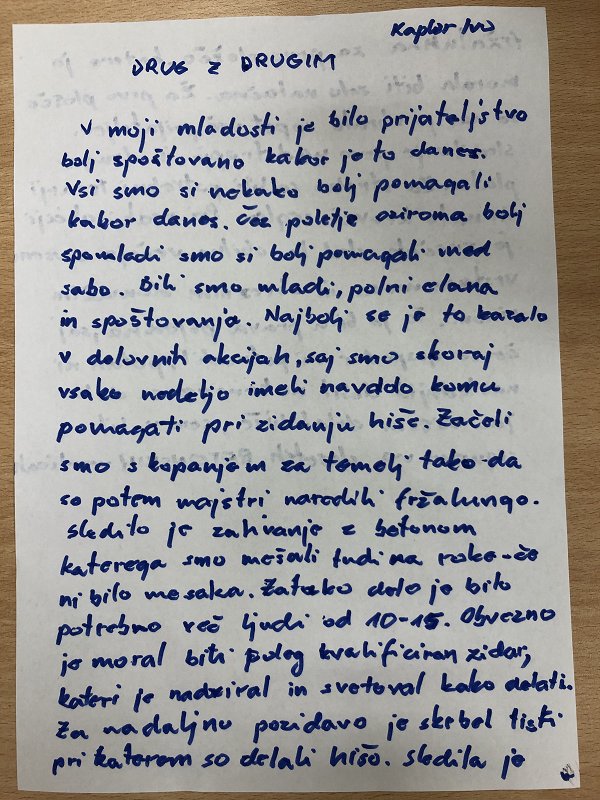 Kaplor Ivo
DRUG Z DRUGIM
V moji mladosti je bilo prijateljstvo
bolj spoštovano kakor je to danes.
Vsi smo si nekako bolj pomagali
kakor danes. Čez poletje oziroma bolj
spomladi smo si bolj pomagali med
sabo. Bili smo mladi, polni elana
in spoštovanja. Najbolj se je to kazalo
v delovnih akcijah, saj smo skoraj
vsako nedeljo imeli navado komu
pomagati pri zidanju hiše. Začeli
smo s kopanjem za temelj tako-da
so potem majstri naredili fržalungo.
Sledilo je zalivanje z betonom
katerega smo mešali tudi na roke-če
ni bilo mešaka. Za tako delo je bilo
potrebno več ljudi od 10-15. Obvezno
je moral biti poleg kvalificiran zidar,
kateri je nadziral in svetoval kako delati.
Za nadaljno pozidavo je skrbel tisti
pri katerem so delali hišo. Sledila je